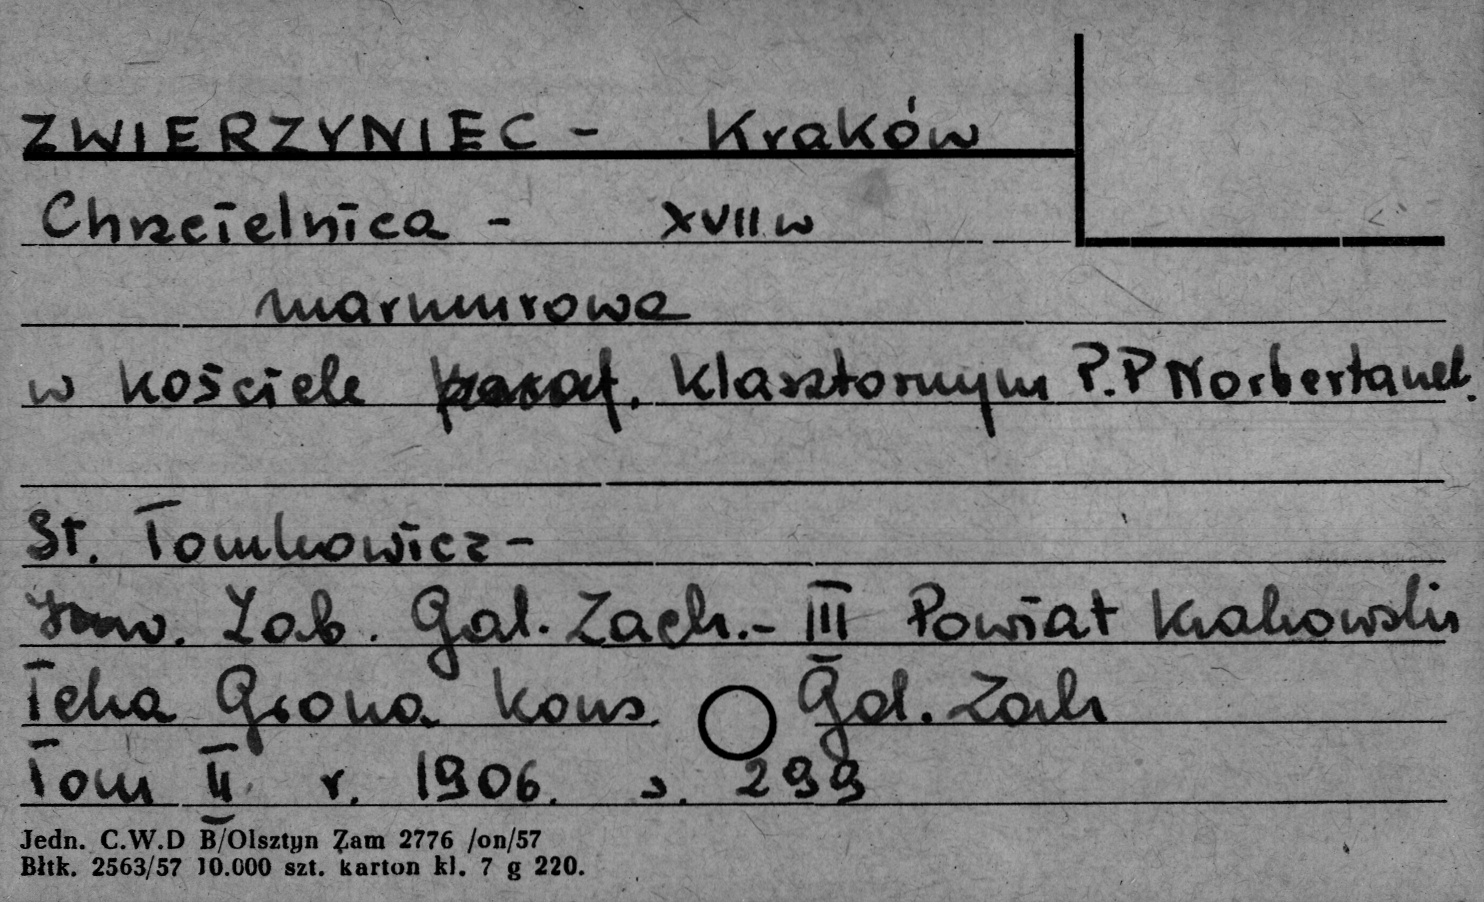 ZWIERZYNIEC - Kraków
Chrzcielnica - XVII w
marmurowa
w kościele paraf. klasztornym P.P Norbertanek.
St. Tomkowicz -
Inw. Zab. Gal. Zach. - III Powiat Krakowski
Teka Grona Kons. Gal. Zach
Tom II r. 1906. s. 299
Jedn. C.W.D B/Olsztyn Zam 2776 /on/57
Błtk. 2563/57 10.000 szt. karton kl. 7 g 220.